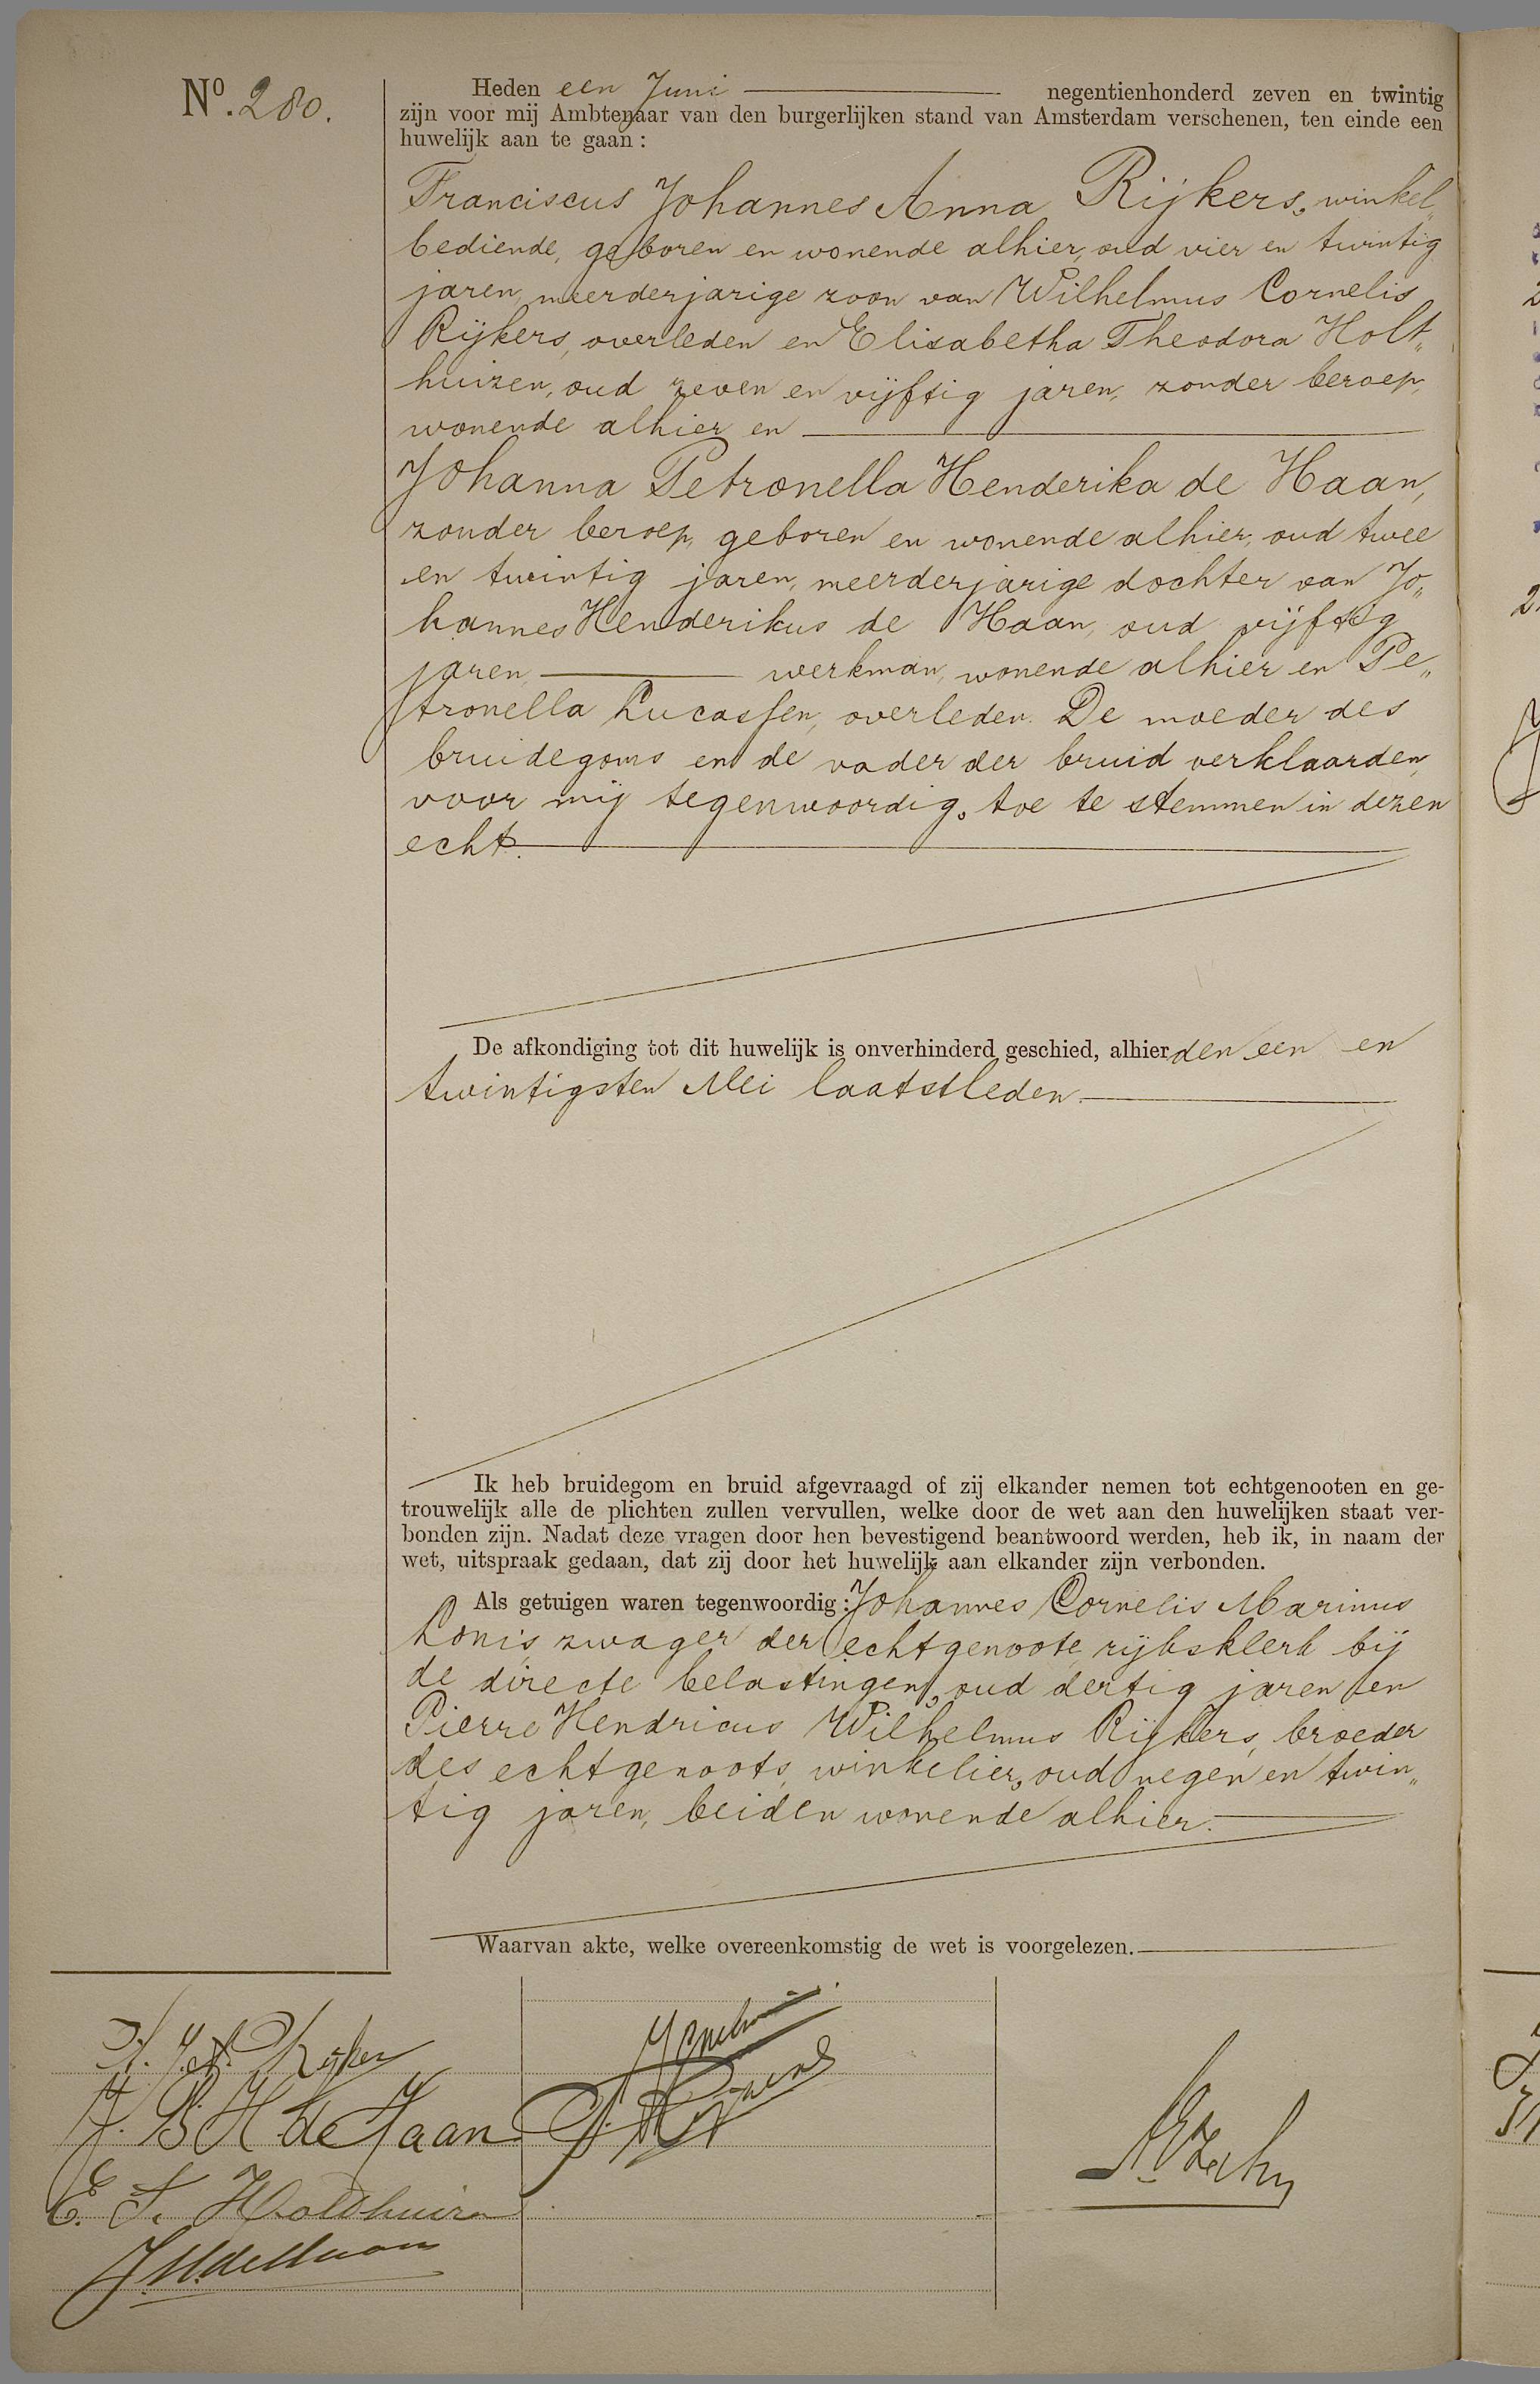 Nº. 280.
Heden een Juni negentienhonderd zeven en twintig
zijn voor mij Ambtenaar van den burgerlijken stand van Amsterdam verschenen, ten einde een
huwelijk aan te gaan:
Franciscus Johannes Anna Rijkers, winkel„
bediende, geboren en wonende alhier, oud vier en twintig
jaren, meerderjarige zoon van Wilhelmus Cornelis
Rijkers, overleden en Elisabetha Theodora Holt„
huizen, oud zeven en vijftig jaren, zonder beroep,
wonende alhier en
Johanna Petronella Henderika de Haan,
zonder beroep, geboren en wonende alhier, oud twee
en twintig jaren, meerderjarige dochter van Jo„
hannes Henderikus de Haan, oud vijftig
jaren, werkman, wonende alhier en Pe„
tronella Lucassen, overleden. De moeder des
bruidegoms en de vader der bruid verklaarden,
voor mij tegenwoordig, toe te stemmen in dezen
echt.
De afkondiging tot dit huwelijk is onverhinderd geschied, alhier den een en
twintigsten Mei laatstleden.
Ik heb bruidegom en bruid afgevraagd of zij elkander nemen tot echtgenooten en ge-
trouwelijk alle de plichten zullen vervullen, welke door de wet aan den huwelijken staat ver-
bonden zijn. Nadat deze vragen door hen bevestigend beantwoord werden, heb ik, in naam der
wet, uitspraak gedaan, dat zij door het huwelijk aan elkander zijn verbonden.
Als getuigen waren tegenwoordig: Johannes Cornelis Marinus
Lonis, zwager der echtgenoote, rijksklerk bij
de directe belastingen, oud dertig jaren en
Pierre Hendricus Wilhelmus Rijkers, broeder
des echtgenoots, winkelier, oud negen en twin„
tig jaren, beiden wonende alhier.
Waarvan akte, welke overeenkomstig de wet is voorgelezen.
F. J. A. Rijkers
J. P. H. de Haan
E. T. Holdhuizen
J. H. de Haan